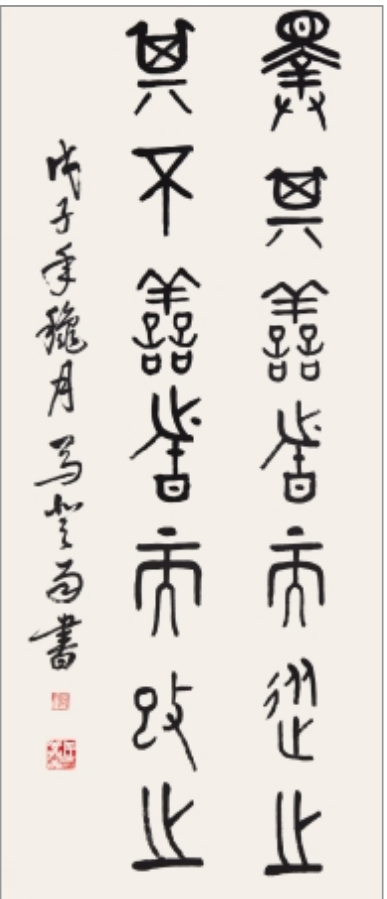 擇其善者而從之
其不善者而改之
戊子年穐月馬書